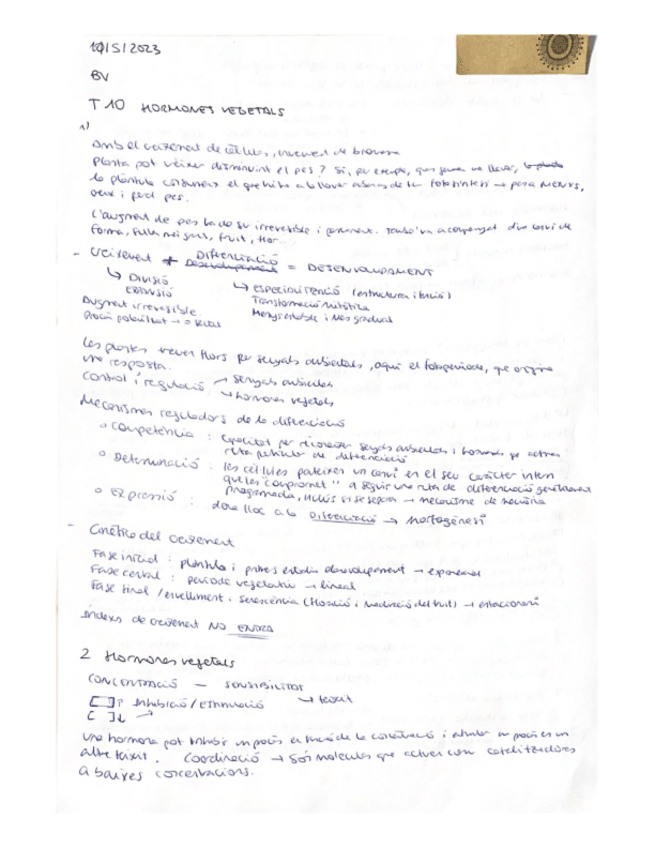 10/5/2023
BV
T 10 HORMONES VEGETALS
1)
Amb el creixement de cèl·lules, increment de biomassa
Planta pot créixer disminuint el pes? Sí, per exemple, quan
la plàntula consumeix el que hi ha a la llavor abans de fer fotosíntesi → pesa menys,
creix i perd pes.
L'augment de pes ha de ser irreversible i permanent. També va acompanyat d'un canvi de
forma, fulla més gran, fruit, flor...
- Creixement + Diferenciació = DESENVOLUPAMENT
↳ DIVISIÓ
EXPANSIÓ
↳ ESPECIALITZACIÓ (estructura i funció)
Augment irreversible.
Transformació
Menys estable i més gradual
Procés
Les plantes treuen flors per senyals ambientals, aquí el fotoperíode, que origina
una resposta.
Control i regulació → senyals ambientals
↳ hormones vegetals
Mecanismes reguladors de la diferenciació
o Competència : capacitat per reconèixer senyals ambientals i hormonals per activar
ruta particular de diferenciació
o Determinació : les cèl·lules pateixen un canvi en el seu caràcter intern
que les "compromet" a seguir una ruta de diferenciació genèticament
programada, inclús si se separa → mecanisme de memòria
o Expressió : dona lloc a la Diferenciació → Morfogènesi
- Cinètica del creixement
Fase inicial : plàntula i primers estadis desenvolupament → exponencial
Fase central : període vegetatiu → lineal
Fase final / envelliment i senescència (floració i maduració del fruit) → estacionari
Índexs de creixement NO ENTRA
2 Hormones vegetals
CONCENTRACIÓ — SENSIBILITAT
[ ]↑ Inhibició / Estimulació ↳ teixit
[ ]↓ →
Una hormona pot inhibir un procés en funció de la concentració i estimular un procés en un
altre teixit. Coordinació → Són molècules que actuen com catalitzadores
a baixes concentracions.